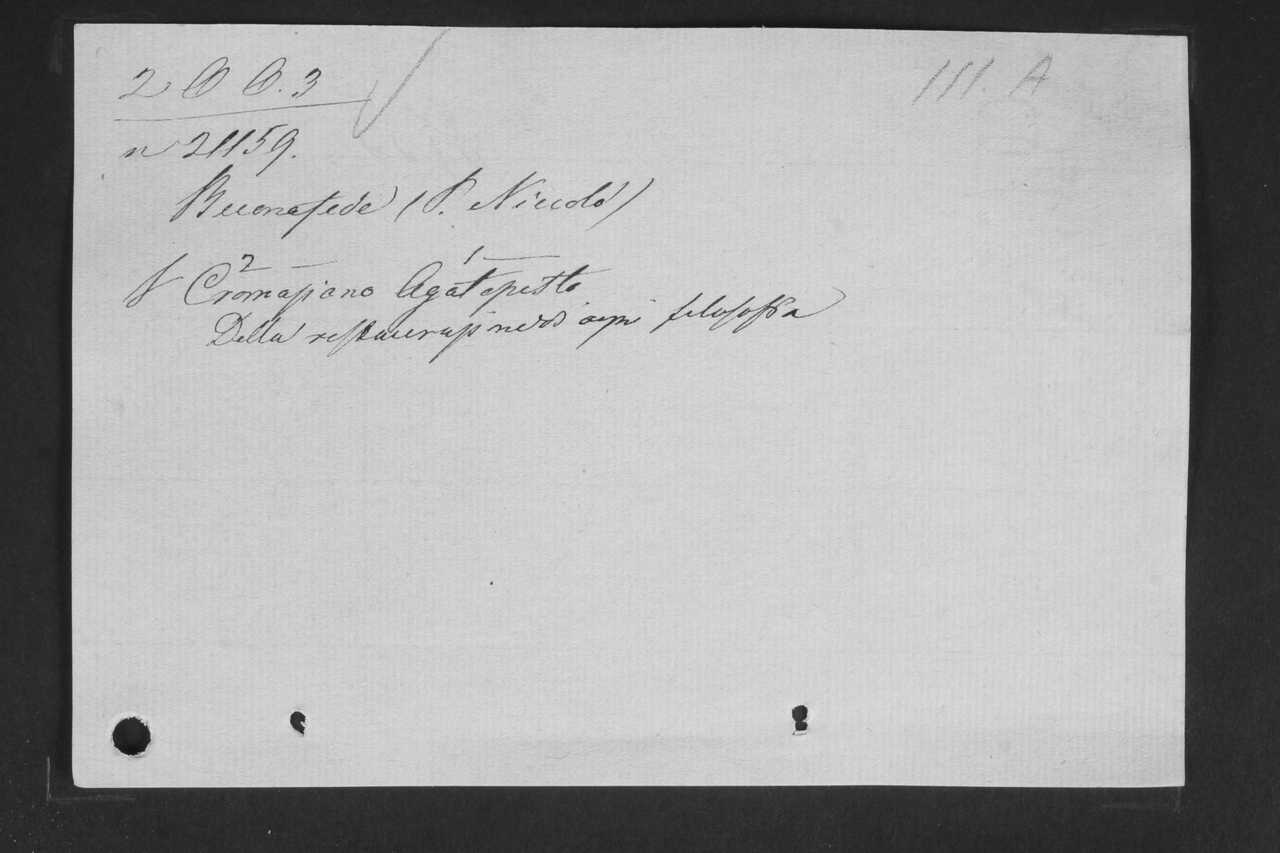 2 O O. 3
III. A
n 21159.
Buonafede (P. Niccolò)
2 1
Cromaziano Agatopisto
Della restaurazi ne di ogni filosofia